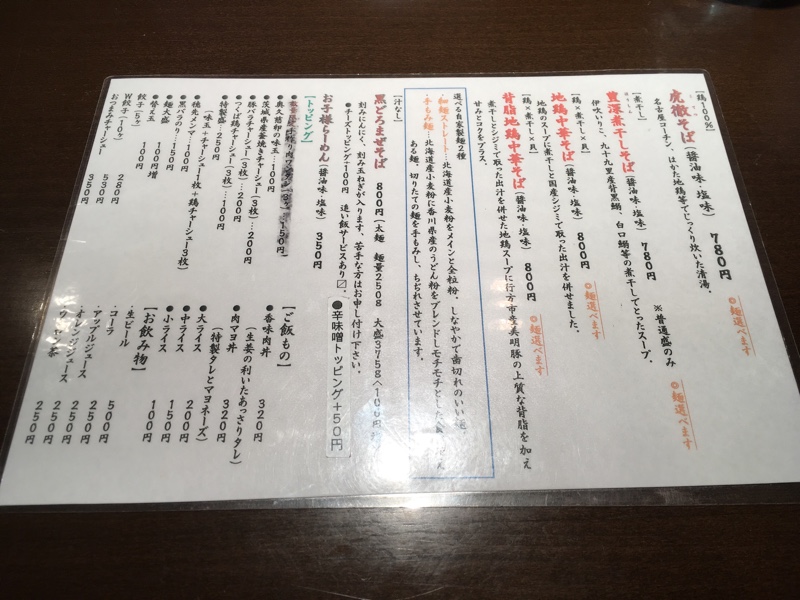 【鶏100%】
虎徹そば(醤油味・塩味) 780円
●麺選べます
名古屋コーチン、はかた地鶏等でじっくり炊いた清湯。
【煮干し】
豊潔煮干しそば(醤油味、塩味) 780円 ※普通盛のみ
●麺選べます
伊吹いりこ、九十九里産背黒鰯、白口鰯等の煮干しでとったスープ。
【鶏×煮干し×貝】
地鶏中華そば(醤油味・塩味) 800円
●麺選べます
地鶏のスープに煮干しと国産シジミで取った出汁を併せました。
【鶏×煮干し×貝】
背脂地鶏中華そば(醤油味・塩味) 800円
●麺選べます
煮干しとシジミで取った出汁を併せた地鶏スープに行方市産美明豚の上質な背脂を加え
甘みとコクをプラス。
選べる自家製麺2種
・細麺ストレート…北海道産小麦粉をメインと全粒粉。しなやかで歯切れのいい麺。
・手もみ麺…北海道産小麦粉に香川県産のうどん粉をブレンドしモチモチとした
ある麺。切りたての麺を手もみし、ちぢれさせています。
【汁なし】
黒どろまぜそば 800円(太麺 麺量250g 大盛375gへ100円増
刻みにんにく、刻み玉ねぎが入ります、苦手な方はお申し付け下さい。
●チーズトッピング+100円 追い飯サービスあり〼。
●辛味噌トッピング+50円
お子様らーめん(醤油味、塩味) 350円
【トッピング】
150円
●奥久慈卵の味玉…100円
●茨城県産釜焼きチャーシュー(3枚)…200円
●豚バラチャーシュー(3枚)…200円
●つくば鶏チャーシュー(3枚)…100円
●特製盛…250円
(味玉+チャーシュー1枚+鶏チャーシュー3枚)
●穂先メンマ…100円
●黒バラのり…100円
●麺大盛…150円
●替え玉 100円増
餃子(5ヶ) 280円
W餃子(10ヶ) 530円
おつまみチャーシュー 350円
【ご飯もの】
●香味肉丼 320円
(生姜の利いたあっさりタレ)
●肉マヨ丼 320円
(特製タレとマヨネーズ)
●大ライス 200円
●中ライス 150円
●小ライス 100円
【お飲み物】
・生ビール 500円
・コーラ 250円
・アップルジュース 250円
・オレンジジュース 250円
250円